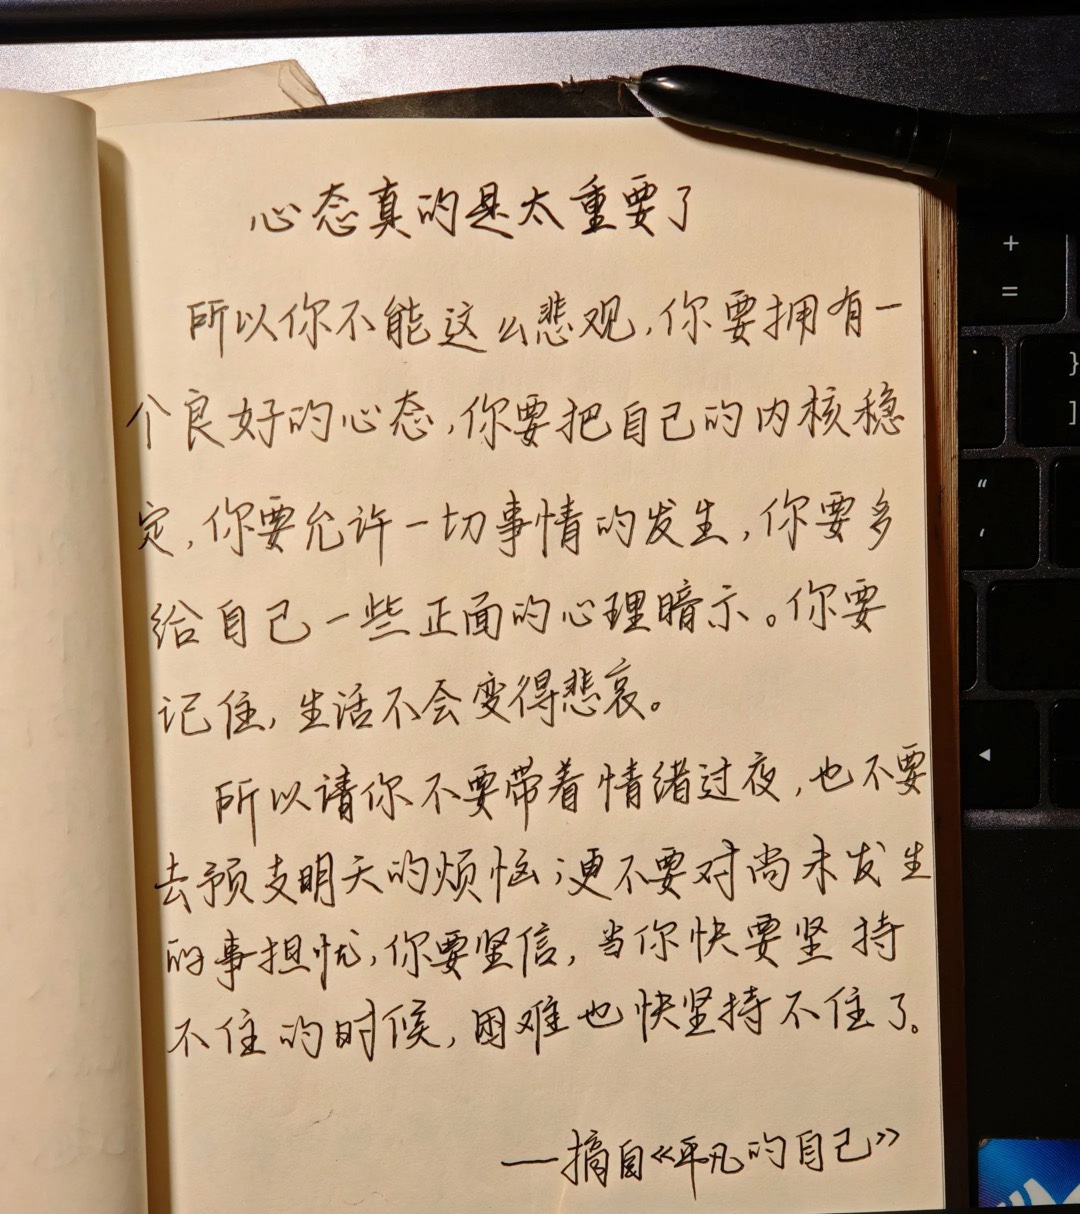 心态真的是太重要了
所以你不能这么悲观,你要拥有一
个良好的心态,你要把自己的内核稳
定,你要允许一切事情的发生,你要多
给自己一些正面的心理暗示。你要
记住,生活不会变得悲哀。
所以请你不要带着情绪过夜,也不要
去预支明天的烦恼;更不要对尚未发生
的事担忧,你要坚信,当你快要坚持
不住的时候,困难也快坚持不住了。
——摘自《平凡的自己》
+
=
}
]
“
‘
◀